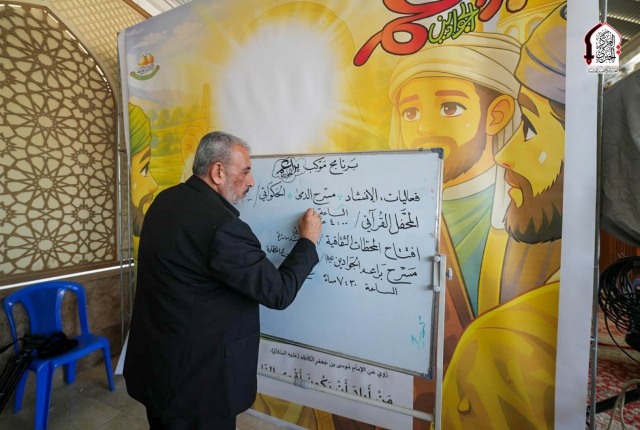 براعم
الجوادين
برنامج موكب براعم
فعاليات، الانشاد * مسرح الدمى * الحكواتي /
الساعة
المحفل القرآني / ٤،٠٠
افتتاح المحطات الثقافية
مسرح براعم الجوادين
الساعة ٧:٣٠ مساءً
روي عن الإمام موسى بن جعفر الكاظم (عليه السلام):
مَنْ أَرَادَ أَنْ يَكُونَ أَقْوَى